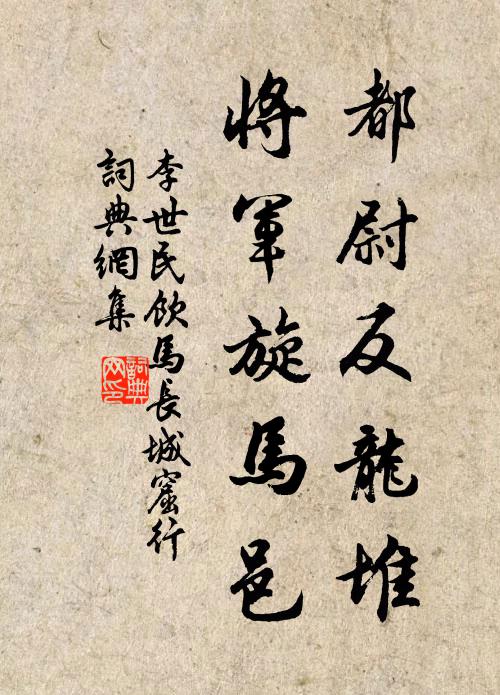 都尉反龍堆
將軍旋馬邑
李世民飲馬長城窟行
詞典網集
詞典网印